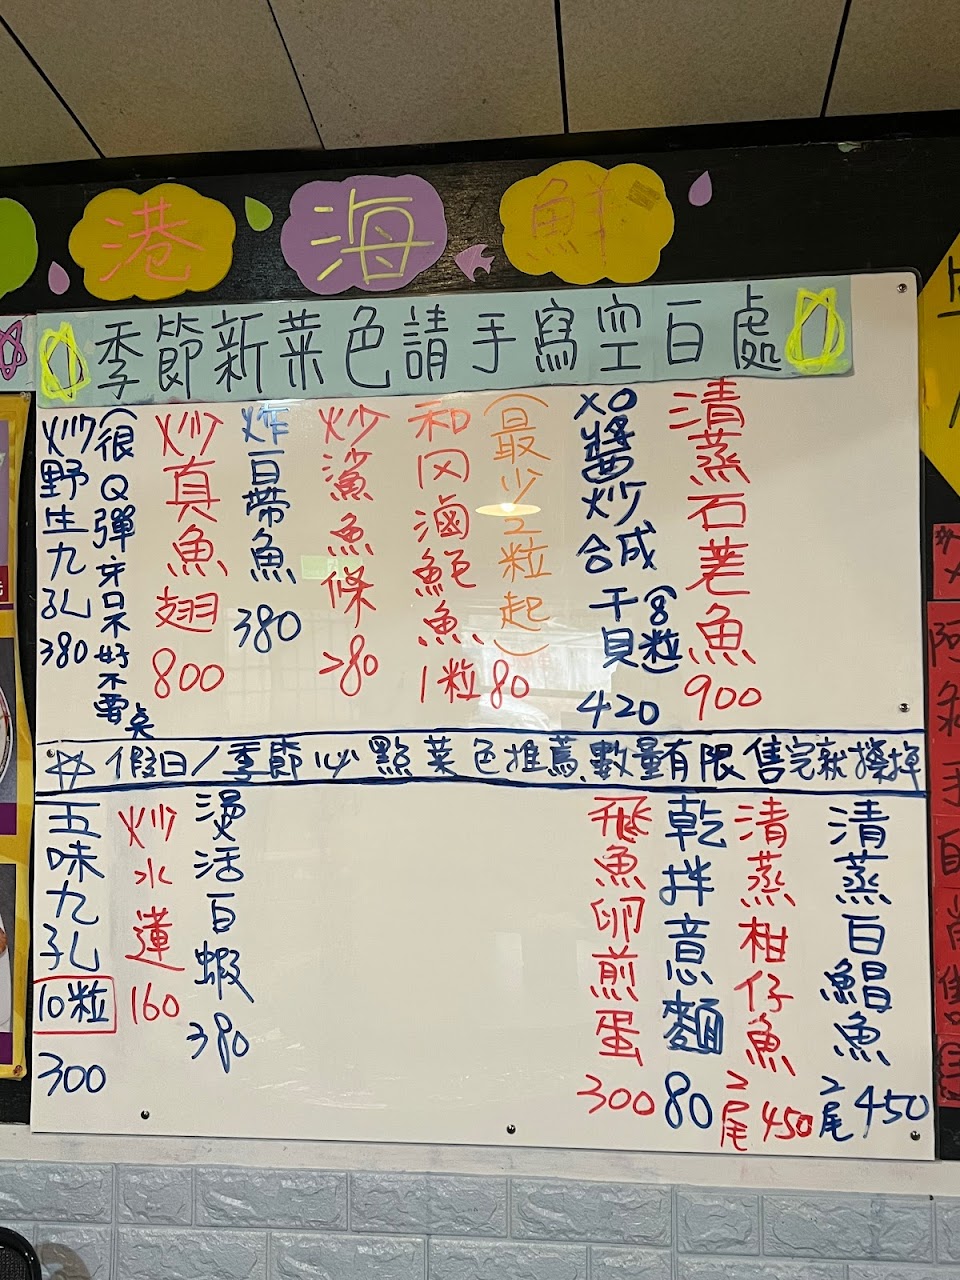 港海鮮
季節新菜色請手寫空白處
清蒸石老魚
900
XO醬炒鹹
干貝(8粒)
420
(最少2粒起)
和风滷鮑魚
1粒80
炒鯊魚條
280
炸白帶魚
380
炒真魚翅
800
(很Q彈牙口不好不要點
炒野生九孔
380
假日/季節必點菜色推薦數量有限售完就擦掉
清蒸白鯧魚
2尾450
清蒸柑仔魚
2尾450
乾拌意麵
80
飛魚卵煎蛋
300
燙活白蝦
380
炒水蓮
160
五味九孔
10粒
300